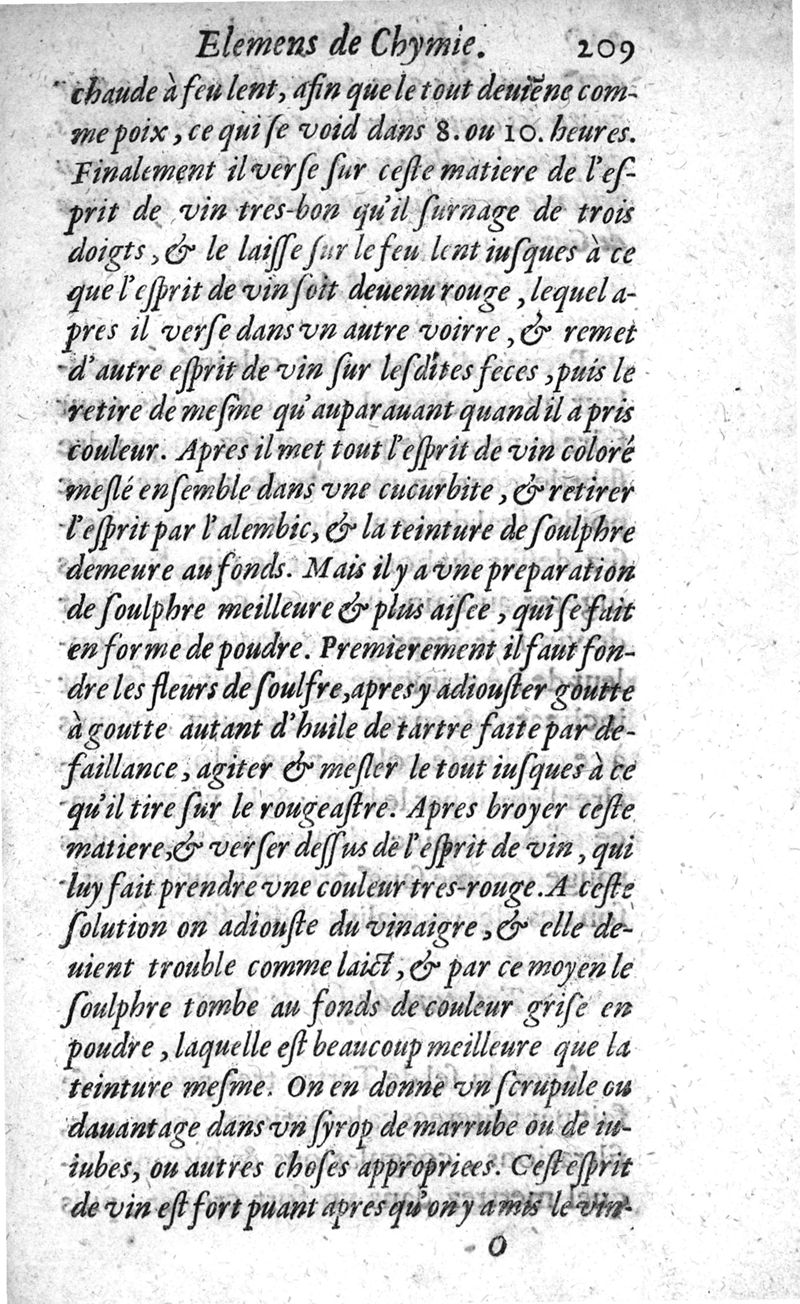 Elemens de Chymie. 209
chaude à feu lent, afin que le tout deuiẽne com-
me poix, ce qui ſe void dans 8. ou 10. heures.
Finalement il verſe ſur ceſte matiere de l'eſ-
prit de vin tres-bon qu'il ſurnage de trois
doigts, & le laiſſe ſur le feu lent iuſques à ce
que l'eſprit de vin ſoit deuenu rouge, lequel a-
pres il verſe dans vn autre voirre, & remet
d'autre eſprit de vin ſur leſdites feces, puis le
retire de meſme qu'auparauant quand il a pris
couleur. Apres il met tout l'eſprit de vin coloré
meſlé enſemble dans vne cucurbite, & retirer
l'eſprit par l'alembic, & la teinture de ſoulphre
demeure au fonds. Mais il y a vne preparation
de ſoulphre meilleure & plus aiſee, qui ſe fait
en forme de poudre. Premierement il faut fon-
dre les fleurs de ſoulfre, apres y adiouſter goutte
à goutte autant d'huile de tartre faite par de-
faillance, agiter & meſler le tout iuſques à ce
qu'il tire ſur le rougeaſtre. Apres broyer ceſte
matiere, & verſer deſſus de l'eſprit de vin, qui
luy fait prendre vne couleur tres-rouge. A ceſte
ſolution on adiouſte du vinaigre, & elle de-
uient trouble comme laict, & par ce moyen le
ſoulphre tombe au fonds de couleur griſe en
poudre, laquelle eſt beaucoup meilleure que la
teinture meſme. On en donne vn ſcrupule ou
dauantage dans vn ſyrop de marrube ou de iu-
iubes, ou autres choſes appropriees. Ceſt eſprit
de vin eſt fort puant apres qu'on y a mis le vin-
O